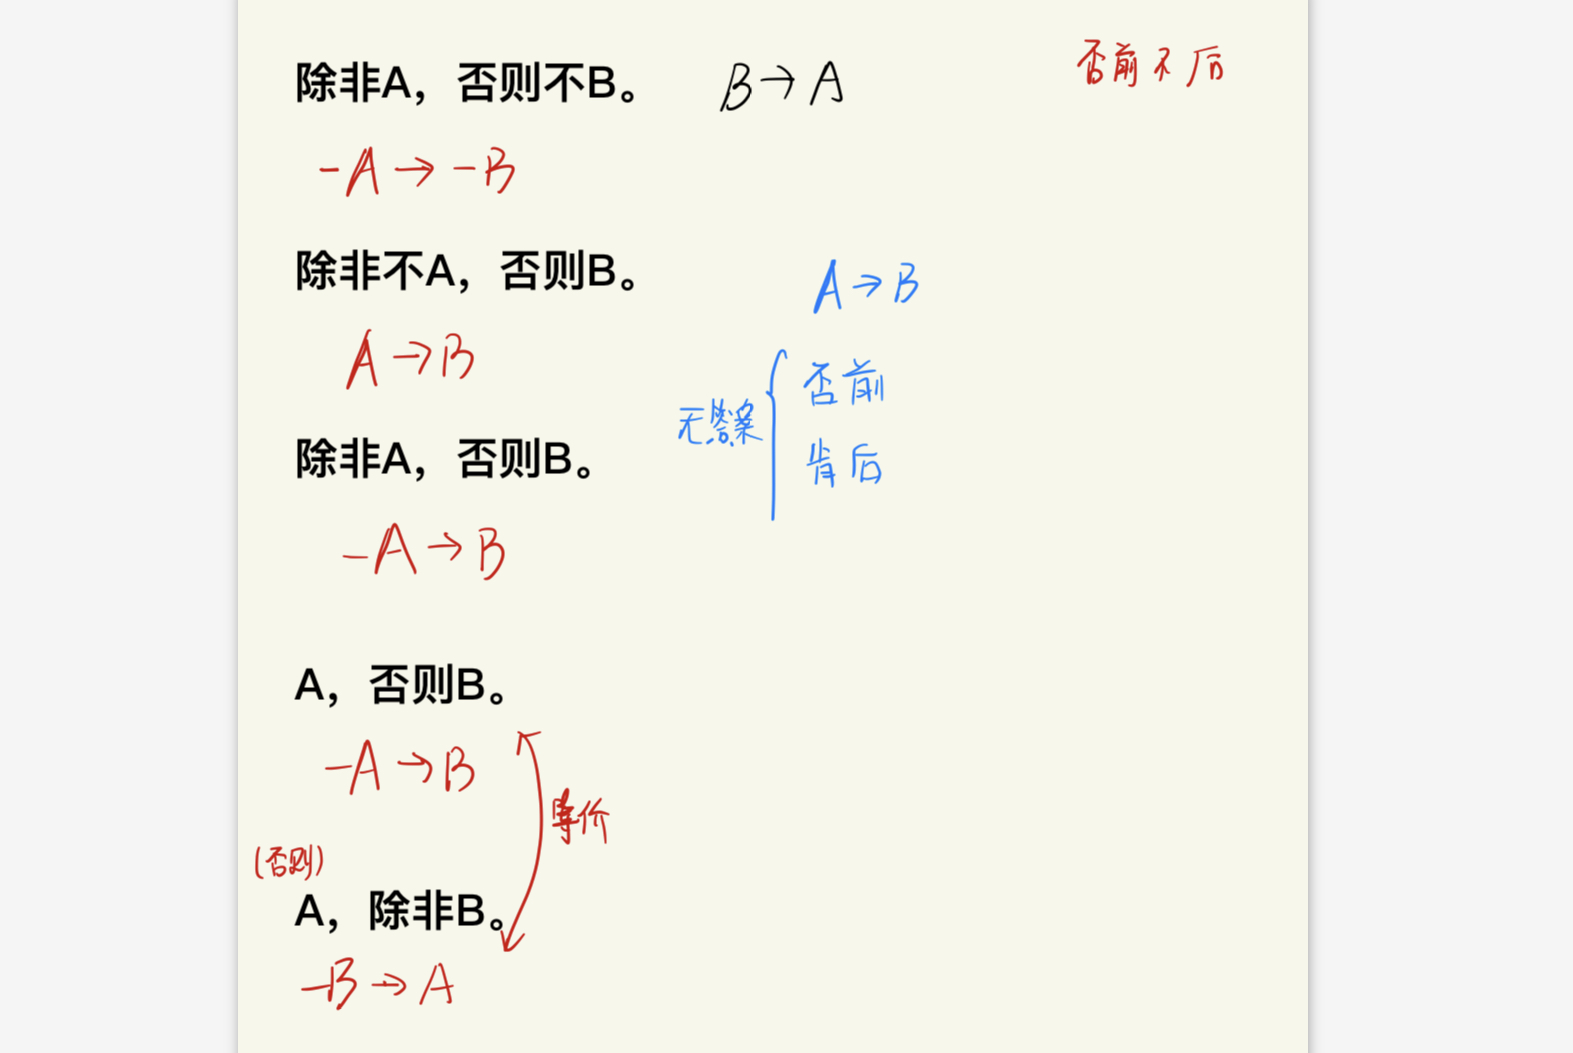 除非A，否则不B。 B→A 否前不后
-A→-B
除非不A，否则B。 A→B
A→B
无答案 { 否前
肯后
除非A，否则B。
-A→B
A，否则B。
-A→B
等价
(否则)
A，除非B。
-B→A